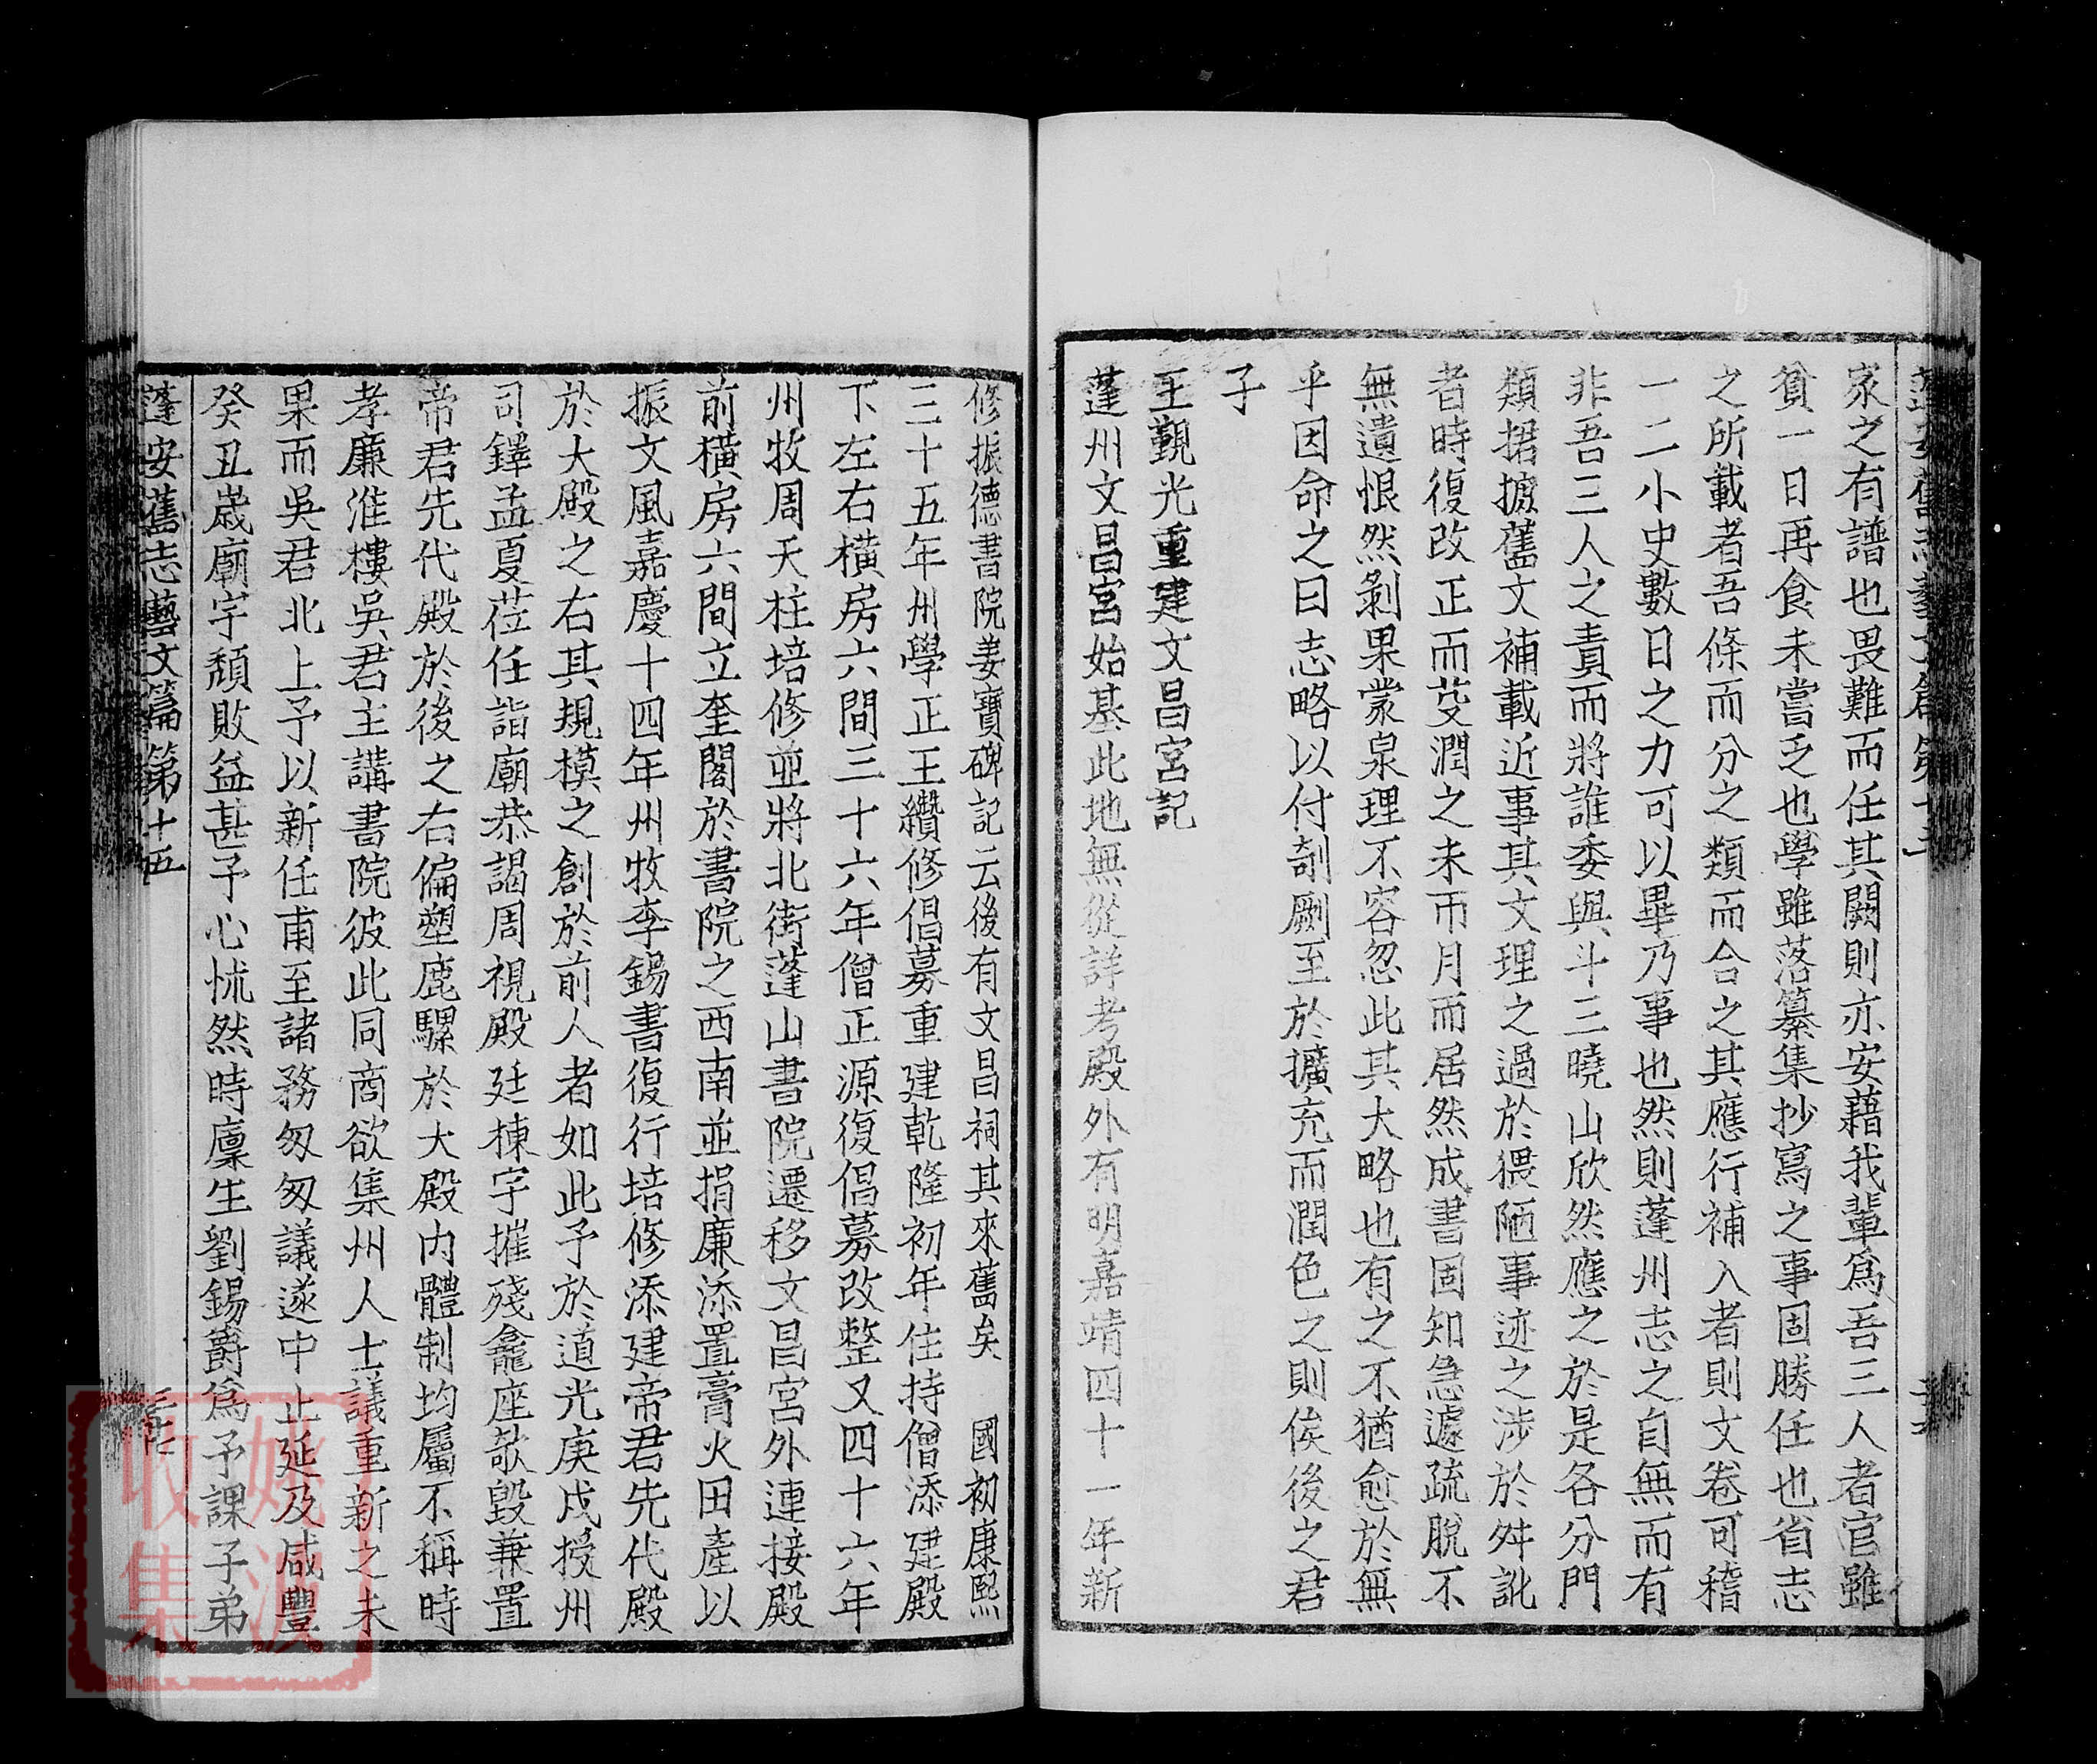 家之有譜也畏難而任其闕則亦安藉我輩爲吾三人者官雖
貧一日再食未嘗乏也學雖落纂集抄寫之事固勝任也省志
之所載者吾條而分之類而合之其應行補入者則文卷可稽
一二小史數日之力可以畢乃事也然則蓬州志之自無而有
非吾三人之責而將誰委與斗三曉山欣然應之於是各分門
類捃摭舊文補載近事其文理之過於猥陋事迹之涉於舛訛
者時復改正而芟潤之未帀月而居然成書固知急遽疏脫不
無遺恨然剝果蒙泉理不容忽此其大略也有之不猶愈於無
乎因命之曰志略以付剞劂至於擴充而潤色之則俟後之君
子
王觀光重建文昌宮記
蓬州文昌宮始基此地無從詳考殿外有明嘉靖四十一年新
修振德書院姜寶碑記云後有文昌祠其來舊矣 國初康熙
三十五年州學正王纘修倡募重建乾隆初年住持僧添建殿
下左右橫房六間三十六年僧正源復倡募改整又四十六年
州牧周天柱培修並將北街蓬山書院遷移文昌宮外連接殿
前橫房六間立奎閣於書院之西南並捐廉添置膏火田產以
振文風嘉慶十四年州牧李錫書復行培修添建帝君先代殿
於大殿之右其規模之創於前人者如此予於道光庚戌授州
司鐸孟夏莅任詣廟恭謁周視殿廷棟宇摧殘龕座欹毀兼置
帝君先代殿於後之右偏塑鹿騾於大殿內體制均屬不稱時
孝廉淮樓吳君主講書院彼此同商欲集州人士議重新之未
果而吳君北上予以新任甫至諸務匆匆議遂中止延及咸豐
癸丑歲廟宇頹敗益甚予心怵然時廩生劉錫爵爲予課子弟
蓬安舊志藝文篇第十五